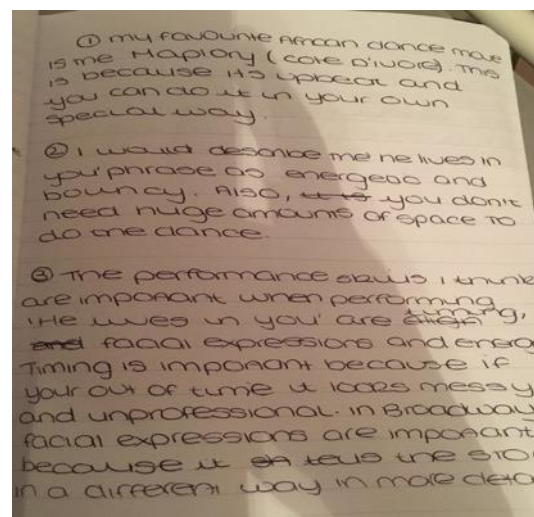 ① my favourite African dance move
is the Maplory (cote D'ivore). This
is because its upbeat and
you can do it in your own
special way.
② I would describe the 'he lives in
you' phrase as energetic and
bouncy. Also, you don't
need huge amounts of space to
do the dance.
③ The performance skills I think
are important when performing
'He lives in you' are timing,
facial expressions and energ
Timing is important because if
your out of time it looks messy
and unprofessional. In Broadway
facial expressions are important
because it tells the sto
in a different way in more deta